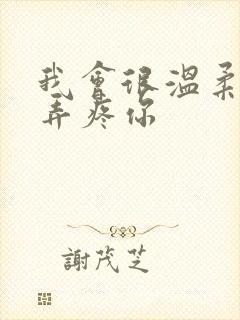 我會很溫柔
弄疼你
謝茂芝